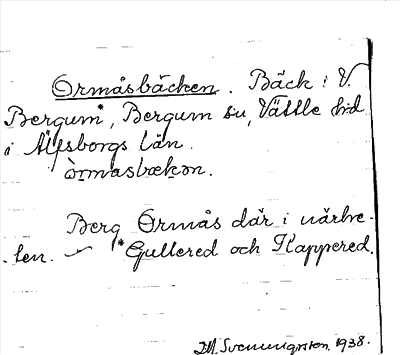 Ormåsbäcken. Bäck i V.
Bergum, Bergum sn, Vättle hd
i Älfsborgs län.
òrmasbækən.
Berg Ormås där i närhe-
ten. – Gullered och Kappered.
Svenningsson. 1938.